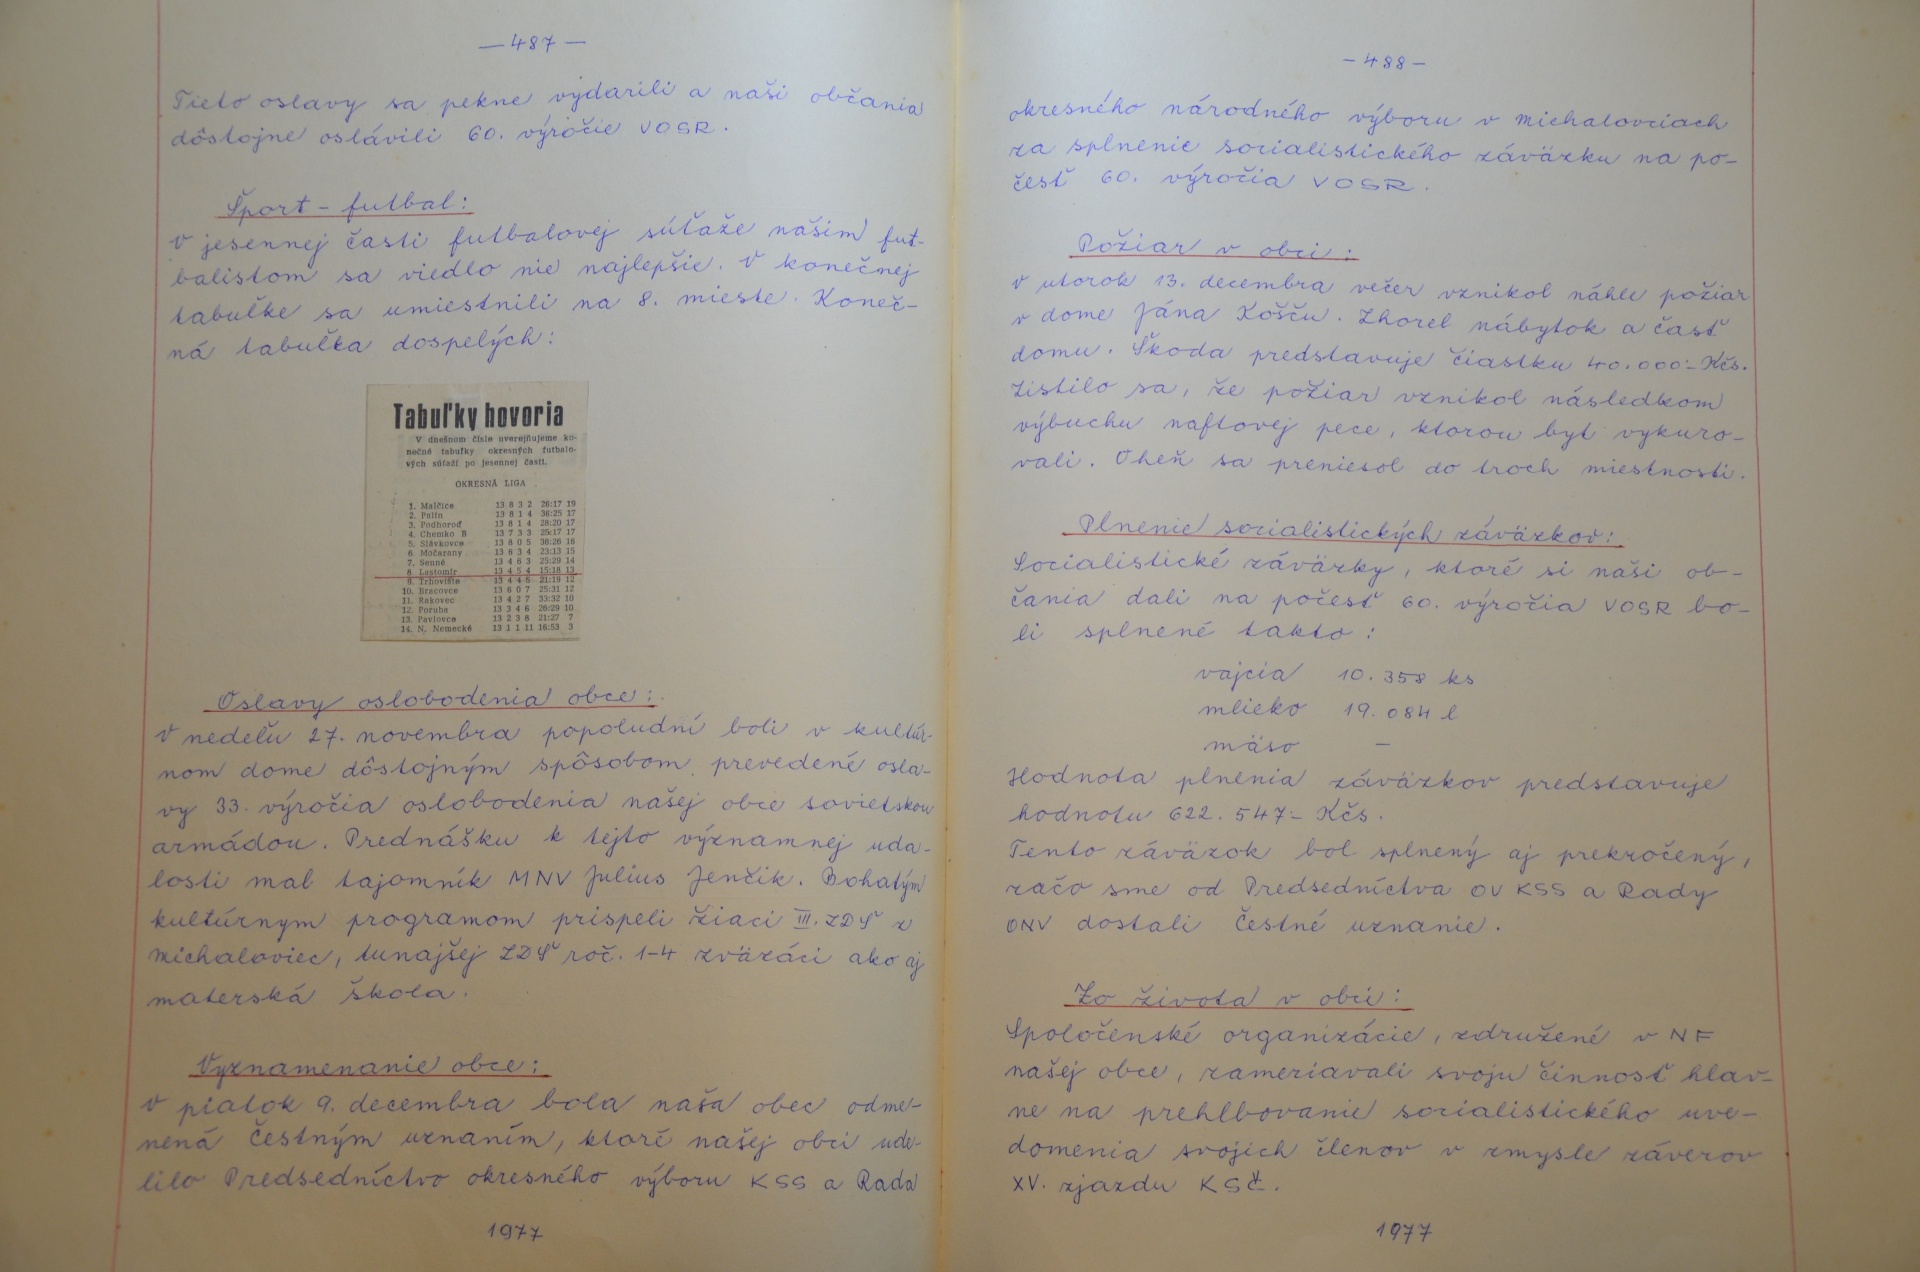 — 487 —
Tieto oslavy sa pekne vydarili a naši občania
dôstojne oslávili 60. výročie VOSR.
Šport - futbal:
V jesennej časti futbalovej súťaže našim fut-
balistom sa viedlo nie najlepšie. V konečnej
tabuľke sa umiestnili na 8. mieste. Koneč-
ná tabuľka dospelých:
Tabuľky hovoria
V dnešnom čísle uverejňujeme ko-
nečné tabuľky okresných futbalo-
vých súťaží po jesennej časti.
OKRESNÁ LIGA
1. Malčice 13 8 3 2 26:17 19
2. Palín 13 8 1 4 36:25 17
3. Podhoroď 13 8 1 4 28:20 17
4. Chemko B 13 7 3 3 25:17 17
5. Slávkovce 13 8 0 5 36:26 16
6. Močarany 13 6 3 4 23:13 15
7. Senné 13 4 6 3 25:29 14
8. Lastomír 13 4 5 4 15:18 13
9. Trhovište 13 4 4 5 21:19 12
10. Bracovce 13 6 0 7 25:31 12
11. Rakovec 13 4 2 7 33:32 10
12. Poruba 13 3 4 6 26:29 10
13. Pavlovce 13 2 3 8 21:27 7
14. N. Nemecké 13 1 1 11 16:53 3
Oslavy oslobodenia obce:
V nedeľu 27. novembra popoludní boli v kultúr-
nom dome dôstojným spôsobom prevedené osla-
vy 33. výročia oslobodenia našej obce sovietskou
armádou. Prednášku k tejto významnej uda-
losti mal tajomník MNV Július Jenčik. Bohatým
kultúrnym programom prispeli žiaci III. ZDŠ z
Michaloviec, tunajšej ZDŠ roč. 1-4 zväzáci ako aj
materská škola.
Vyznamenanie obce:
V piatok 9. decembra bola naša obec odme-
nená čestným uznaním, ktoré našej obci ude-
lilo Predsedníctvo okresného výboru KSS a Rada
1977
- 488 -
okresného národného výboru v Michalovciach
za splnenie socialistického záväzku na po-
česť 60. výročia VOSR.
Požiar v obci:
V utorok 13. decembra večer vznikol náhle požiar
v dome Jána Košču. Zhorel nábytok a časť
domu. Škoda predstavuje čiastku 40.000.- Kčs.
Zistilo sa, že požiar vznikol následkom
výbuchu naftovej pece, ktorou byt vykuro-
vali. Oheň sa preniesol do troch miestnosti.
Plnenie socialistických záväzkov:
Socialistické záväzky, ktoré si naši ob-
čania dali na počesť 60. výročia VOSR bo-
li splnené takto:
vajcia 10.358 ks
mlieko 19.084 l
mäso –
Hodnota plnenia záväzkov predstavuje
hodnotu 622.547.- Kčs.
Tento záväzok bol splnený aj prekročený,
začo sme od Predsedníctva OV KSS a Rady
ONV dostali čestné uznanie.
Zo života v obci:
Spoločenské organizácie, združené v NF
našej obce, zameriavali svoju činnosť hlav-
ne na prehlbovanie socialistického uve-
domenia svojich členov v zmysle záverov
XV. zjazdu KSČ.
1977